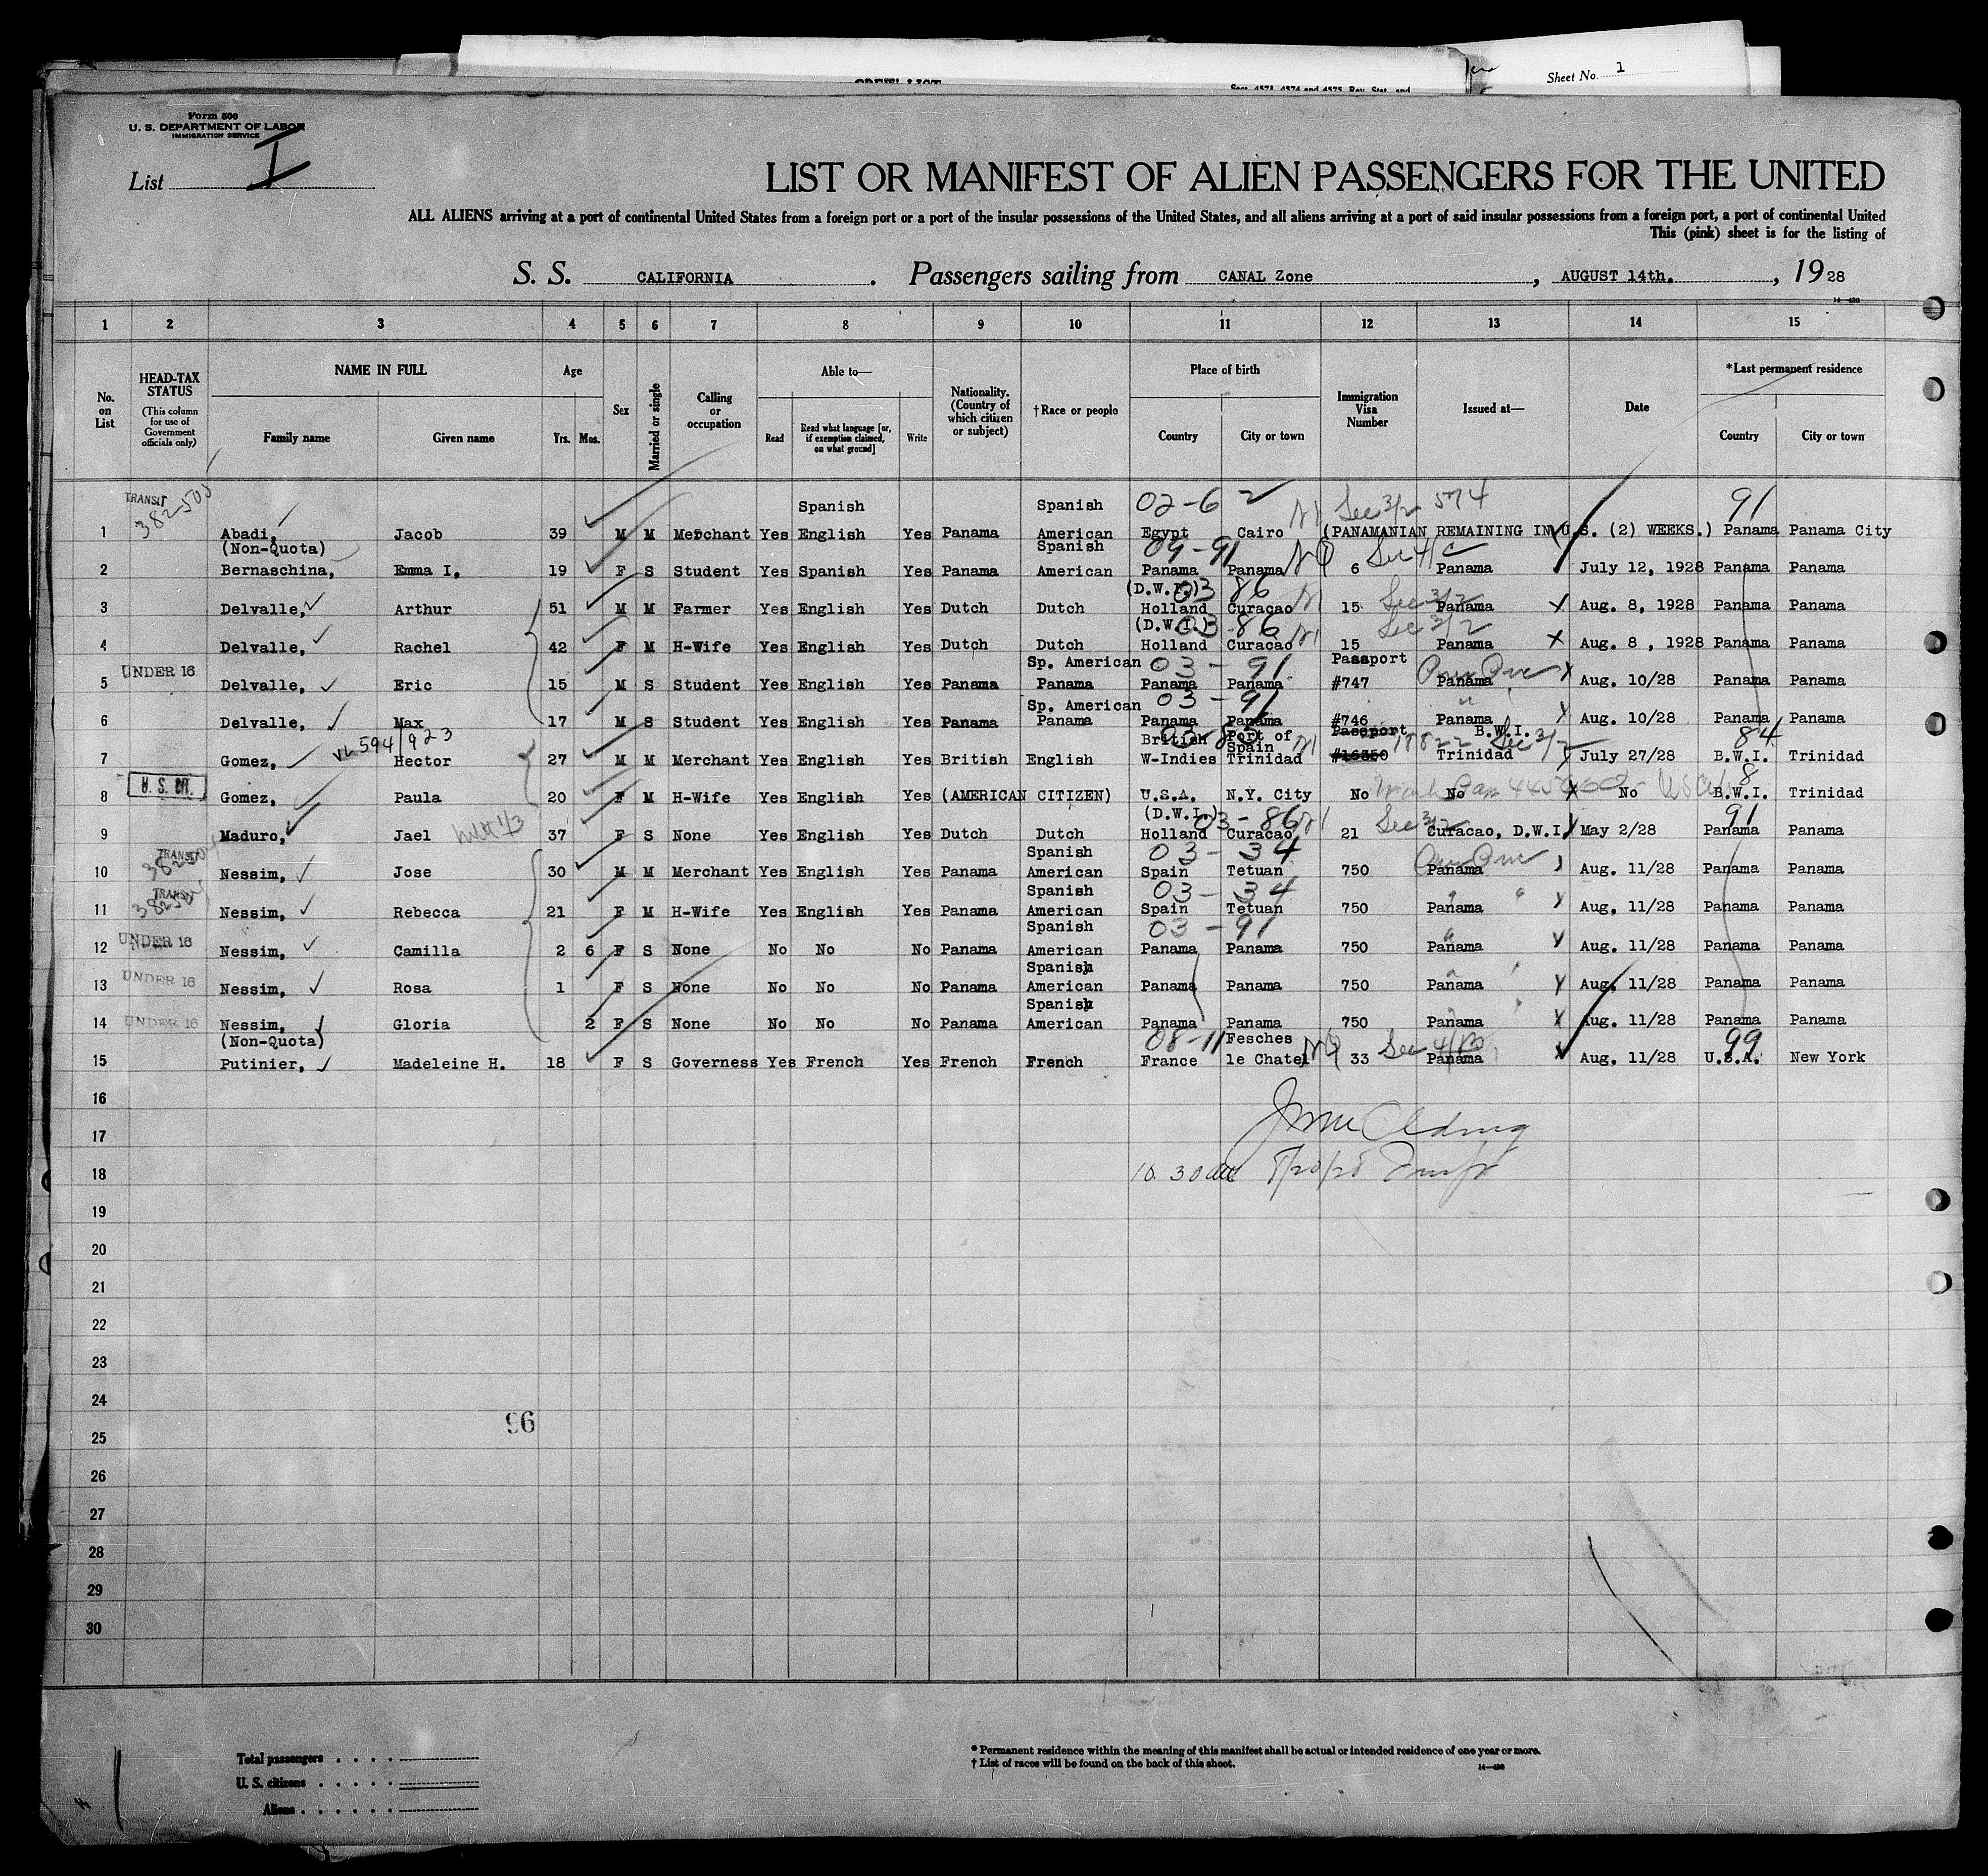 CREW LIST
Secs. 4573, 4574 and 4575, Rev. Stat. and
Sheet No. 1
Form 500
U. S. DEPARTMENT OF LABOR
IMMIGRATION SERVICE
List I
LIST OR MANIFEST OF ALIEN PASSENGERS FOR THE UNITED
ALL ALIENS arriving at a port of continental United States from a foreign port or a port of the insular possessions of the United States, and all aliens arriving at a port of said insular possessions from a foreign port, a port of continental United
This (pink) sheet is for the listing of
S. S. CALIFORNIA . Passengers sailing from CANAL Zone , AUGUST 14th. , 19 28
1 2 3 4 5 6 7 8 9 10 11 12 13 14 15
No. on List
HEAD-TAX STATUS
(This column for use of Government officials only)
NAME IN FULL
Family name Given name
Age
Yrs. Mos.
Sex
Married or single
Calling or occupation
Able to—
Read
Read what language [or, if exemption claimed, on what ground]
Write
Nationality. (Country of which citizen or subject)
† Race or people
Place of birth
Country City or town
Immigration Visa Number
Issued at—
Date
* Last permanent residence
Country City or town
TRANSIT 382-505 Spanish Spanish 02-62 Sec 3/2 574 91
1 Abadi, Jacob 39 M M Merchant Yes English Yes Panama American Egypt Cairo (PANAMANIAN REMAINING IN U.S. (2) WEEKS.) Panama Panama City
(Non-Quota) Spanish 09-91 Sec 4/c
2 Bernaschina, Emma I, 19 F S Student Yes Spanish Yes Panama American Panama Panama 6 Panama July 12, 1928 Panama Panama
(D.W.I.) 03 86 Sec 3/2
3 Delvalle, Arthur 51 M M Farmer Yes English Yes Dutch Dutch Holland Curacao 15 Panama Aug. 8, 1928 Panama Panama
(D.W.I.) 03-86 Sec 3/2
4 Delvalle, Rachel 42 F M H-Wife Yes English Yes Dutch Dutch Holland Curacao 15 Panama Aug. 8 , 1928 Panama Panama
UNDER 16 Sp. American 03-91 Passport
5 Delvalle, Eric 15 M S Student Yes English Yes Panama Panama Panama Panama #747 Panama Aug. 10/28 Panama Panama
Sp. American 03-91
6 Delvalle, Max 17 M S Student Yes English Yes Panama Panama Panama Panama #746 Panama Aug. 10/28 Panama Panama
594/923 British Port of Spain Passport B.W.I. Sec 3/2 84
7 Gomez, Hector 27 M M Merchant Yes English Yes British English W-Indies Trinidad Trinidad July 27/28 B.W.I. Trinidad
U. S. CIT.
8 Gomez, Paula 20 F M H-Wife Yes English Yes (AMERICAN CITIZEN) U.S.A. N.Y. City No No No B.W.I. Trinidad
(D.W.I.) 03-86 Sec 3/2 91
9 Maduro, Jael 37 F S None Yes English Yes Dutch Dutch Holland Curacao 21 Curacao, D.W.I. May 2/28 Panama Panama
TRANSIT Spanish 03-34
10 Nessim, Jose 30 M M Merchant Yes English Yes Panama American Spain Tetuan 750 Panama Aug. 11/28 Panama Panama
TRANSIT Spanish 03-34
11 Nessim, Rebecca 21 F M H-Wife Yes English Yes Panama American Spain Tetuan 750 Panama Aug. 11/28 Panama Panama
UNDER 16 Spanish 03-91
12 Nessim, Camilla 2 6 F S None No No No Panama American Panama Panama 750 Panama Aug. 11/28 Panama Panama
UNDER 16 Spanish
13 Nessim, Rosa 1 F S None No No No Panama American Panama Panama 750 Panama Aug. 11/28 Panama Panama
UNDER 16 Spanish
14 Nessim, Gloria 2 F S None No No No Panama American Panama Panama 750 Panama Aug. 11/28 Panama Panama
(Non-Quota) 08-11 Fesches Sec 4/ 99
15 Putinier, Madeleine H. 18 F S Governess Yes French Yes French French France le Chatel 33 Panama Aug. 11/28 U.S.A. New York
16
17
10.30 8/20/28
18
19
20
21
22
23
24
96
25
26
27
28
29
30
Total passengers
U. S. citizens
Aliens
* Permanent residence within the meaning of this manifest shall be actual or intended residence of one year or more.
† List of races will be found on the back of this sheet.